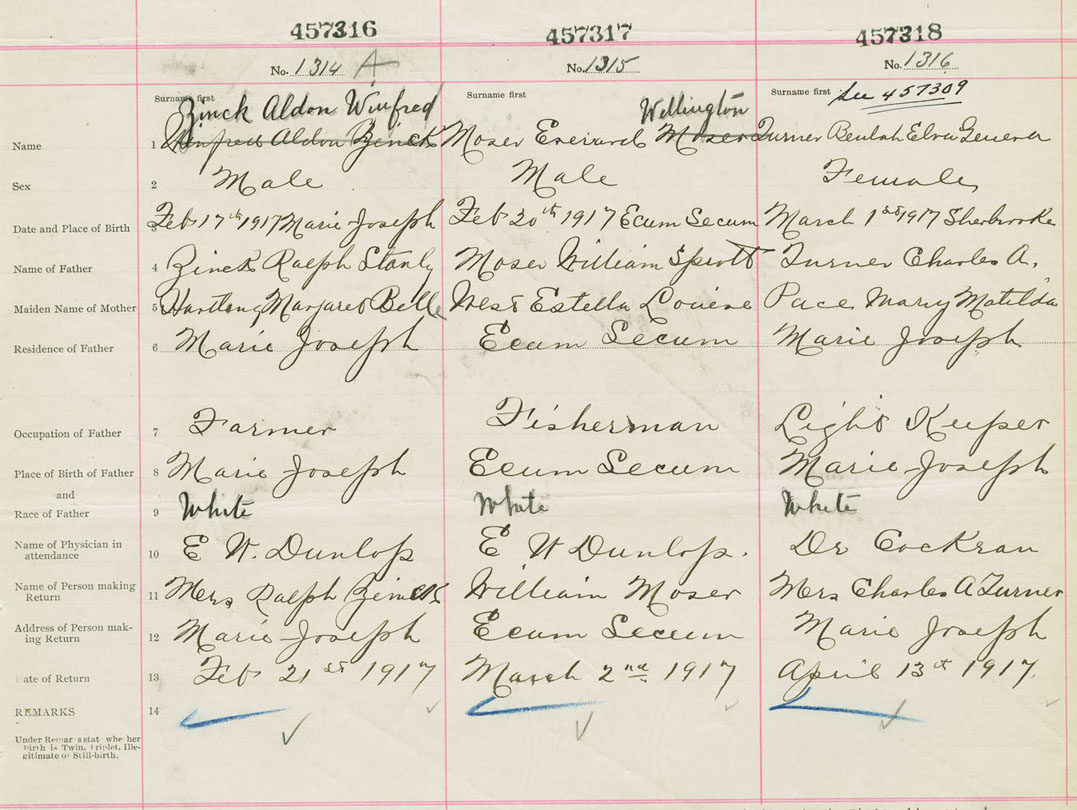 457316 457317 457318
No. 1314 A No. 1315 No. 1316
Surname first Surname first Surname first See 457309
Zinck Aldon Winfred Wellington
Name 1 Winfred Aldon Zinck Moser Everard Moser Turner Beulah Elva Geneva
Sex 2 Male Male Female
Date and Place of Birth 3 Feb 17th 1917 Marie Joseph Feb 20th 1917 Ecum Secum March 1st 1917 Sherbrooke
Name of Father 4 Zinck Ralph Stanly Moser William Sprott Turner Charles A.
Maiden Name of Mother 5 Hartling Margaret Belle West Estella Louise Pace Mary Matilda
Residence of Father 6 Marie Joseph Ecum Secum Marie Joseph
Occupation of Father 7 Farmer Fisherman Light Keeper
Place of Birth of Father 8 Marie Joseph Ecum Secum Marie Joseph
and
Race of Father 9 White White White
Name of Physician in
attendance 10 E W. Dunlop E W Dunlop. Dr Cockran
Name of Person making
Return 11 Mrs Ralph Zinck William Moser Mrs Charles A Turner
Address of Person mak-
ing Return 12 Marie Joseph Ecum Secum Marie Joseph
Date of Return 13 Feb 21st 1917 March 2nd 1917 April 13th 1917.
REMARKS 14
Under Remarks state whether
birth is Twin, Triplet, Ille-
gitimate or Still-birth.